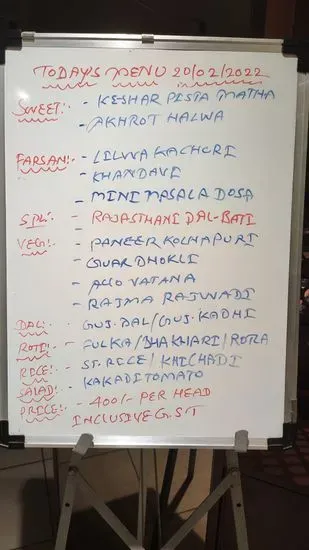 TODAY'S MENU 20/02/2022
SWEET:- - KESHAR PISTA MATHA
- AKHROT HALWA
FARSAN:- - LILWA KACHORI
- KHANDAVI
- MINI MASALA DOSA
SPL:- - RAJASTHANI DAL-BATI
VEG:- - PANEER KOLHAPURI
- GUAR DHOKLI
- ALLO VATANA
- RAJMA RAJWADI
DAL:- - GUJ. DAL/GUJ. KADHI
ROTI:- - FULKA/BHAKHARI/ROTLA
RICE:- - ST. RICE/KHICHADI
SALAD:- KAKADI TOMATO
PRICE:- - 400/- PER HEAD
INCLUSIVE G.S.T